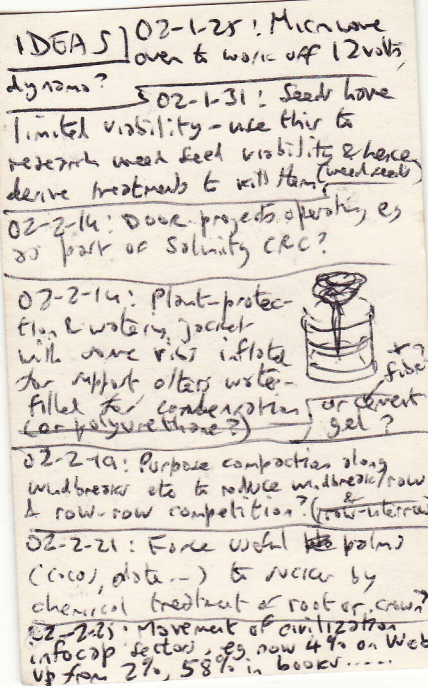 IDEAS] 02-1-25: Microwave
oven to work off 12 volts,
dynamo?
02-1-31: Seeds have
limited viability - use this to
research weed seed viability & hence
derive treatments to kill them? (weed seeds)
02-2-14: projects operating eg
as part of Salinity CRC?
02-2-14: Plant-protec-
tion & watering jacket
with some ribs inflated
for support others water-
filled for condensation
(or polyurethane?)
or cement
gel?
+ ?
fibre
02-2-19: Purpose compaction along
windbreaks etc to reduce windbreak/row
& row-row competition? (
&
02-2-21: Force useful palms
(cocos, date...) to sucker by
chemical treatment of root or crown?
02-2-25: Movement of civilization
infocap sectors, eg now 4% on Web
up from 2%, 58% in books......